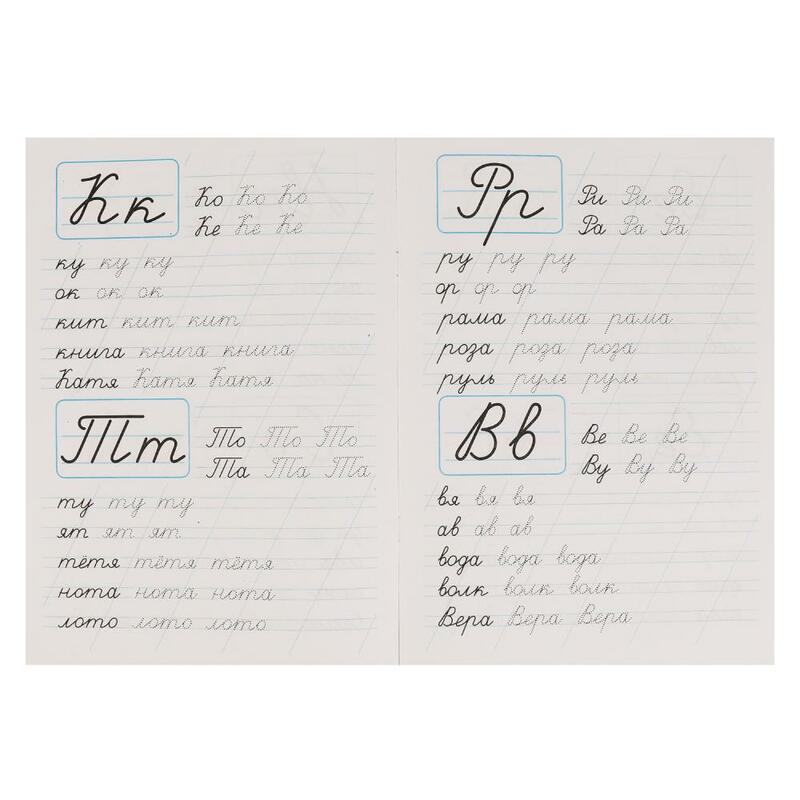 Кк
Ко Ко Ко
Ке Ке Ке
ку ку ку
ок ок ок
кит кит кит
книга книга книга
Катя Катя Катя
Тт
То То То
Та Та Та
ту ту ту
ят ят ят
тётя тётя тётя
нота нота нота
лото лото лото
Рр
Ри Ри Ри
Ра Ра Ра
ру ру ру
ор ор ор
рама рама рама
роза роза роза
руль руль руль
Вв
Ве Ве Ве
Ву Ву Ву
вя вя вя
ав ав ав
вода вода вода
волк волк волк
Вера Вера Вера